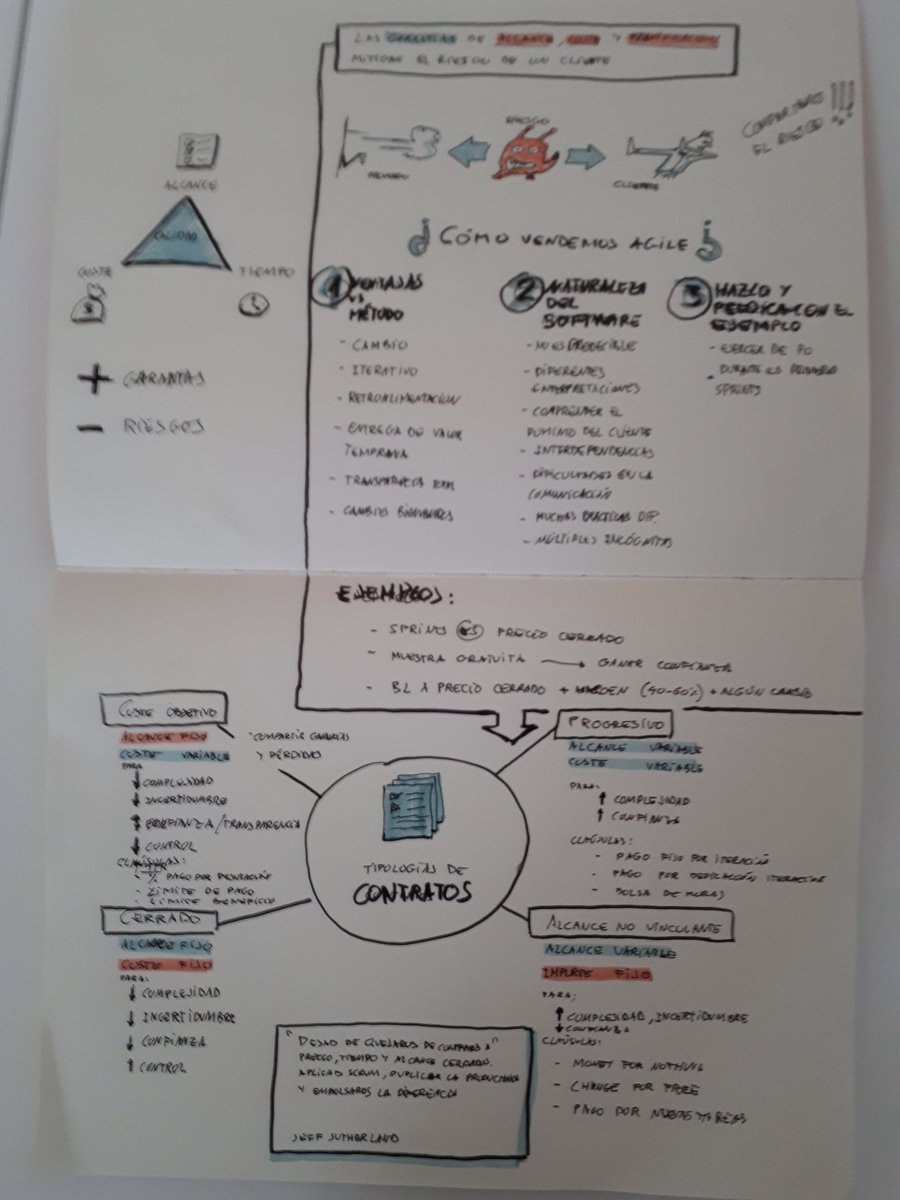 LAS GARANTÍAS DE ALCANCE, COSTE Y PLANIFICACIÓN
MITIGAN EL RIESGO DE UN CLIENTE
RIESGO
CLIENTE
COMPARTAMOS
EL RIESGO!!!
ALCANCE
CALIDAD
COSTE
TIEMPO
+ GARANTAS
- RIESGOS
¿CÓMO VENDEMOS AGILE?
1 VENTAJAS
VS
MÉTODO
- CAMBIO
- ITERATIVO
- RETROALIMENTACIÓN
- ENTREGA DE VALOR
TEMPRANA
- TRANSPARENCIA
- CAMBIOS
2 NATURALEZA
DEL
SOFTWARE
- NO ES PREDECIBLE
- DIFERENTES
INTERPRETACIONES
- COMPRENDER EL
DOMINIO DEL CLIENTE
- INTERDEPENDENCIAS
- DIFICULTADES EN LA
COMUNICACIÓN
- MUCHAS PRÁCTICAS DIF.
- MÚLTIPLES INCÓGNITAS
3 HAZLO Y
PREDICAR CON EL
EJEMPLO
- EJERCER DE PO
DURANTE LOS PRIMEROS
SPRINTS
EJEMPLOS:
- SPRINTS PRECIO CERRADO
- MUESTRA GRATUITA → GANAR CONFIANZA
- BL A PRECIO CERRADO + MARGEN (40-60%) + ALGÚN CAMBIO
COSTE OBJETIVO
ALCANCE FIJO
COSTE VARIABLE
"COMPARTIR GANANCIAS
Y PÉRDIDAS
PARA
↓ COMPLEJIDAD
↓ INCERTIDUMBRE
↑ CONFIANZA/TRANSPARENCIA
↓ CONTROL
CLAÚSULAS:
PAGO POR
- LÍMITE DE PAGO
- LÍMITE BENEFICIO
PROGRESIVO
ALCANCE VARIABLE
COSTE VARIABLE
PARA:
↑ COMPLEJIDAD
↑ CONFIANZA
CLAÚSULAS:
- PAGO FIJO POR ITERACIÓN
- PAGO POR DEDICACIÓN ITERACIÓN
- BOLSA DE HORAS
TIPOLOGÍAS DE
CONTRATOS
CERRADO
ALCANCE FIJO
COSTE FIJO
PARA:
↓ COMPLEJIDAD
↓ INCERTIDUMBRE
↓ CONFIANZA
↑ CONTROL
ALCANCE NO VINCULANTE
ALCANCE VARIABLE
IMPORTE FIJO
PARA:
↑ COMPLEJIDAD, INCERTIDUMBRE
↓ CONFIANZA
CLAÚSULAS:
- MONEY FOR NOTHING
- CHANGE FOR FREE
- PAGO POR
"DEJAD DE QUEJAROS DE CONTRATOS A
PRECIO, TIEMPO Y ALCANCE CERRADO.
APLICAD SCRUM, DUPLICAR LA PRODUCTIVIDAD
Y EMBOLSAROS LA DIFERENCIA"
JEFF SUTHERLAND